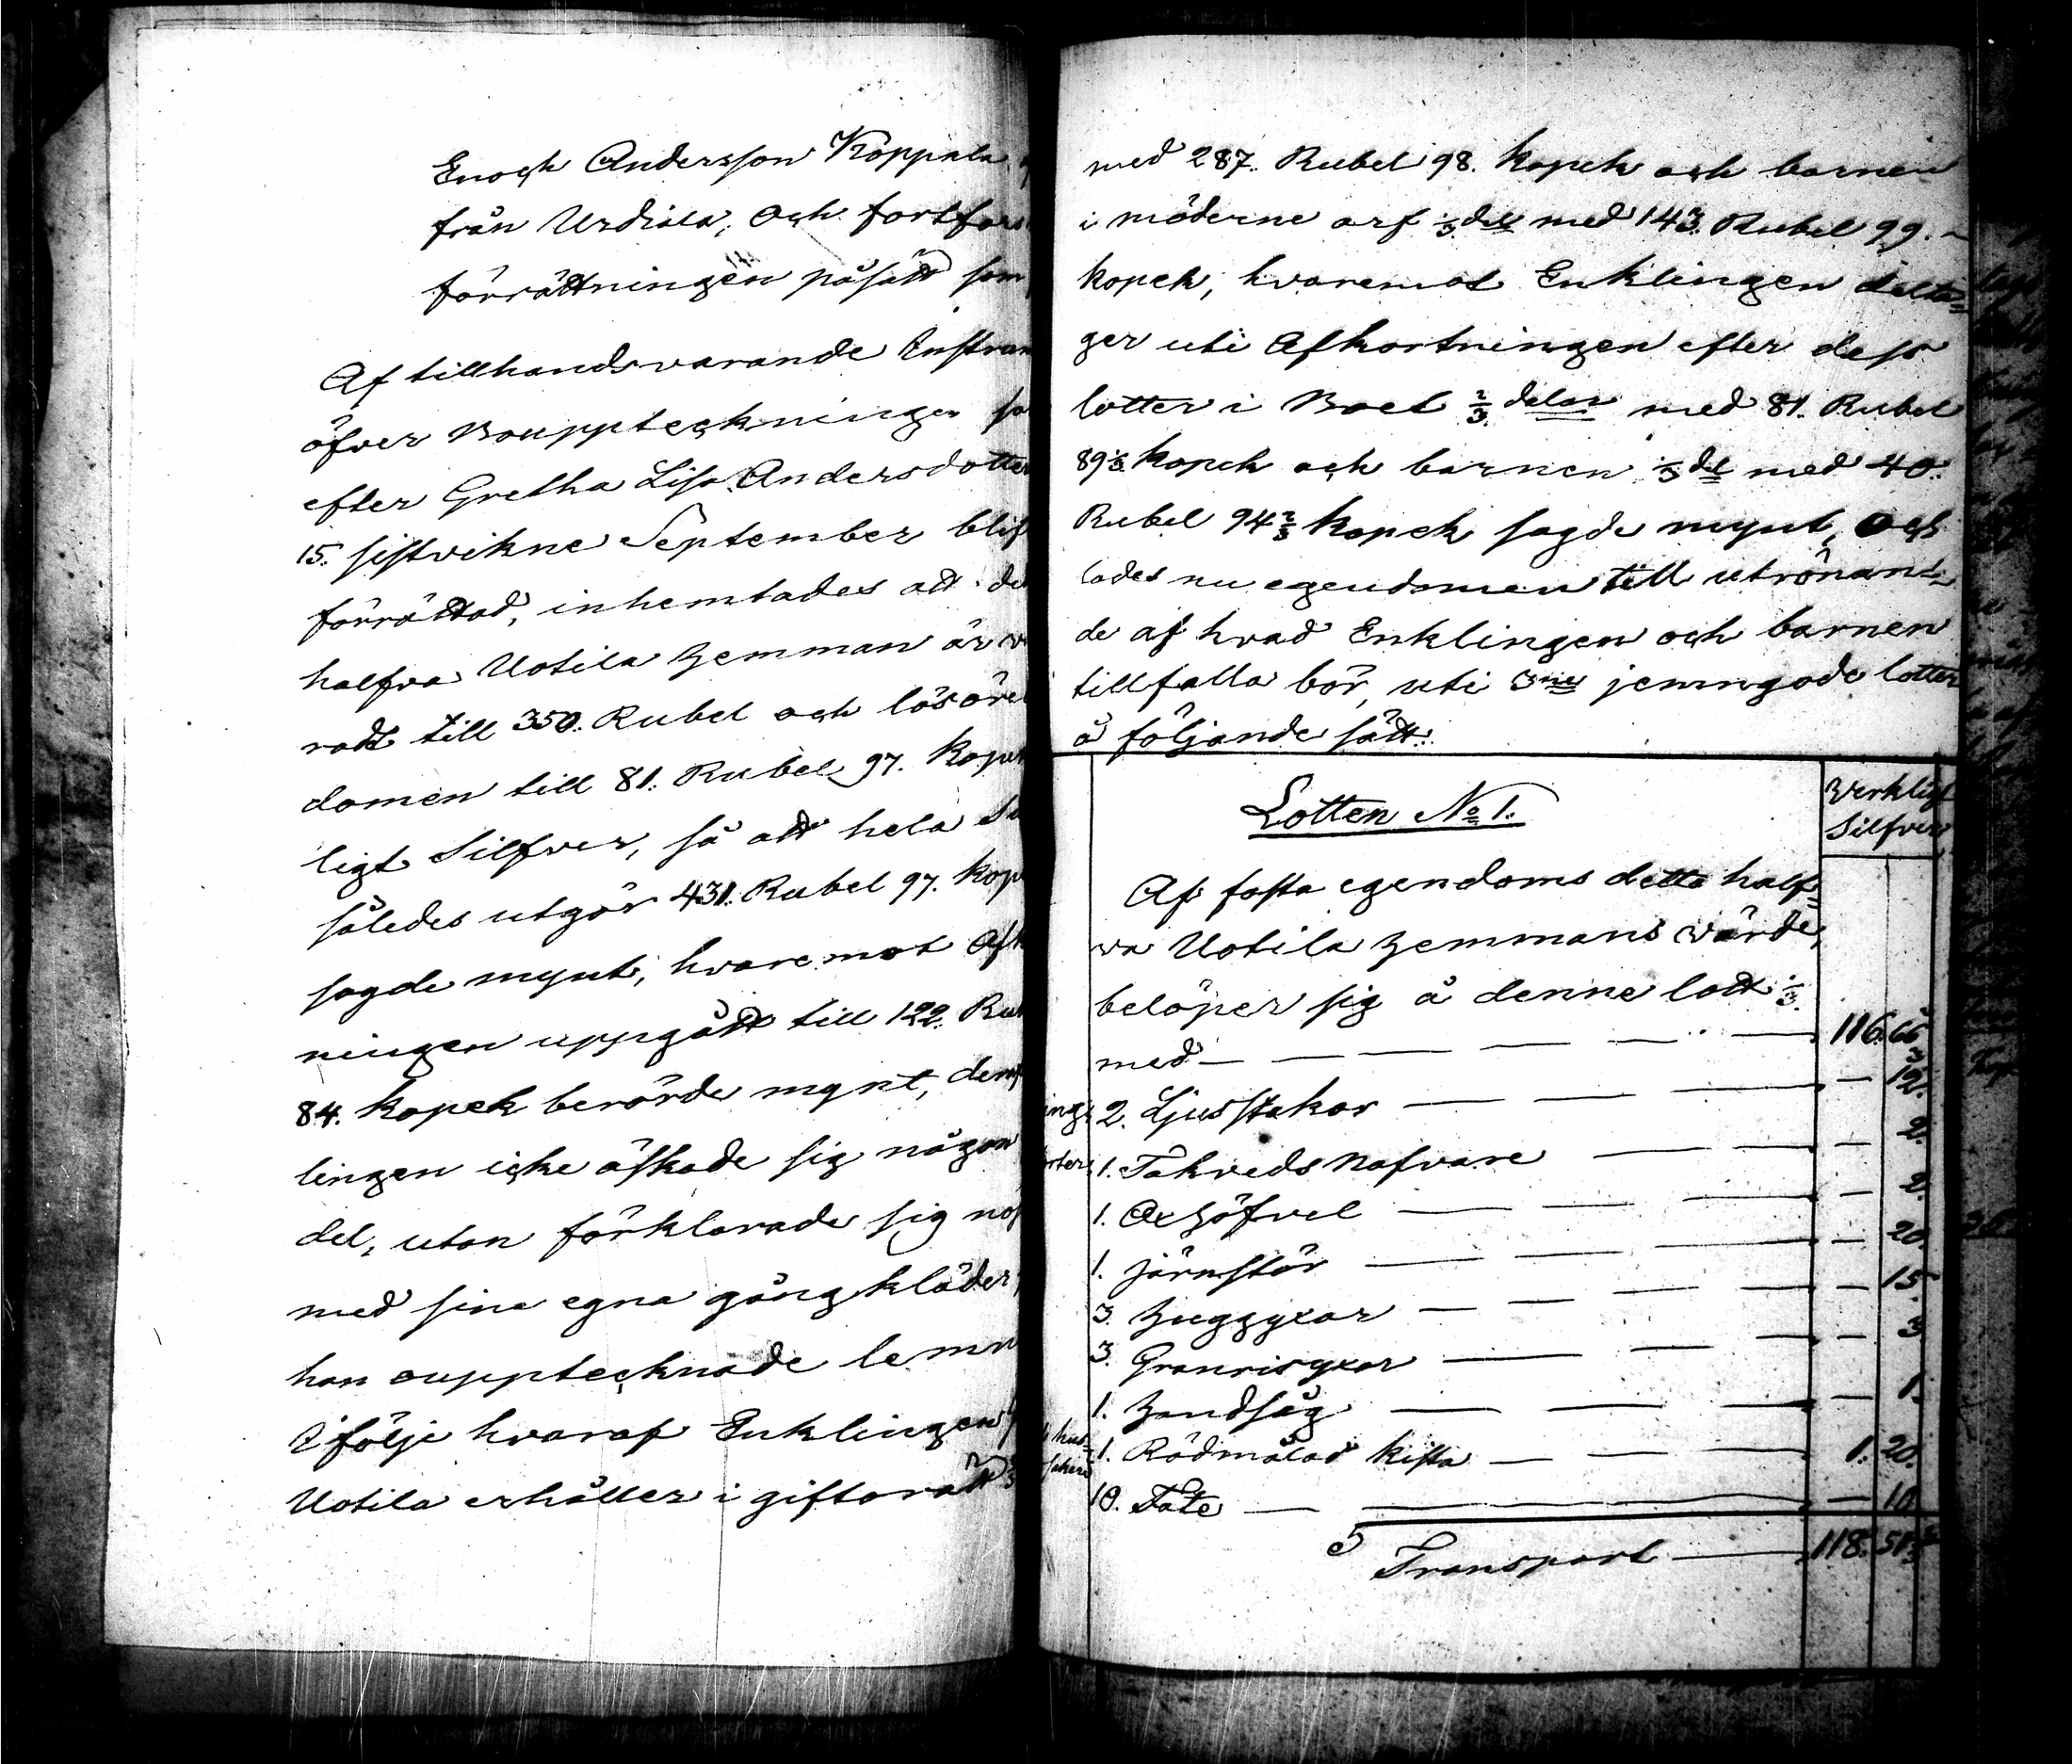 Enoch Andersson Koppala
från Urdiala, och fortfor
förrättningen påsätt som
Af tillhandsvarande Instrum
öfver Bouppteckningen
efter Gretha Lisa Andersdotter
15. sistvikne September blif
förrättad, inhemtades att de
halfva Uotila Hemman är
radt till 350. Rubel och lösöre
domen till 81. Rubel 97. Kopek
ligt Silfver, så att hela
således utgör 431. Rubel 97. Kop
sagde mynt, hvaremot Afk
ningen uppgått till 122. Rub
84. Kopek berörde mynt,
lingen icke äskade sig någon
del, utan förklarade sig nöj
med sina egna gångkläder
han oupptecknade lemn
I följe hvaraf Enklingen
Uotila erhåller i giftorätt 2/3
med 287. Rubel 98. Kopek och barnen
i möderne arf 1/3 del med 143. Rubel 99.
Kopek, hvaremot Enklingen delta-
ger uti Afkortningen efter dess
lotter i Boet 2/3 delar med 81. Rubel
89 1/3 Kopek och barnen 1/3 del med 40.
Rubel 94 2/3 Kopek sagde mynt, Och
lades nu egendomen till utrönan-
de af hvad Enklingen och barnen
tillfalla bör, uti 3ne jemngoda lotter
å följande sätt:
Lotten No 1.
Verkligt
Silfver
Af fasta egendoms detta half-
va Uotila Hemmans värde,
belöper sig å denne lott 1/3
med — 116. 66 2/3
2. Ljusstakar — 12.
1. Takvedsnafvare — 2.
1. Oxhöfvel — 2.
1. järnstör — 20.
3. Huggyxor — 15.
3. Granrisyxor — 3.
1. Handsåg — 1.
1. Rödmålad kista — 1. 20.
10. Fate — 10.
Transport — 118. 51 2/3